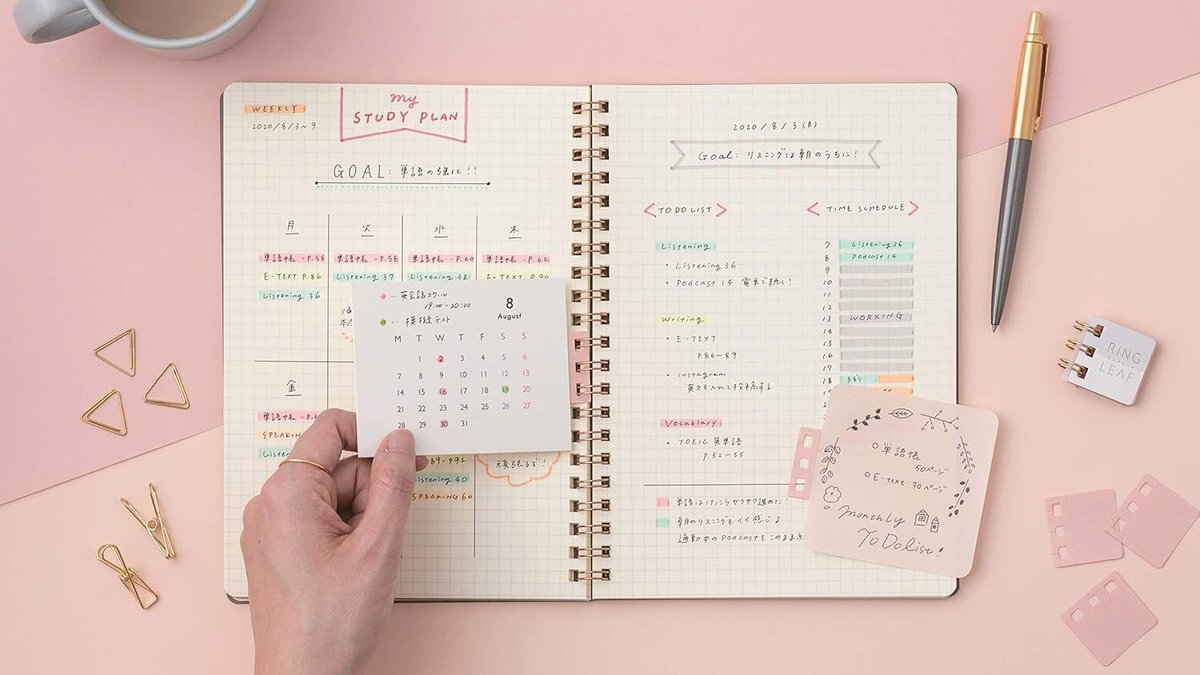 WEEKLY
2020/8/3~9
my
STUDY PLAN
GOAL: 単語の強化!!
月 火 水 木
単語帳-P.56 単語帳-P.58 単語帳-P.60 単語帳-P.62
E-TEXT P.86 Listening 37 Listening 38 E-TEXT P.90
Listening 36
英会話スクール
19:00-20:00
模擬テスト
8
August
M T W T F S S
1 2 3 4 5 6
7 8 9 10 11 12 13
14 15 16 17 18 19 20
21 22 23 24 25 26 27
28 29 30 31
金
単語帳-P.6
SPEAKING
Listen
89-P92
Listening 40
SPEAKING 60
頑張るぞ!
2020/8/3(月)
Goal: リスニングは朝のうちに!
TO DO LIST
Listening
・Listening 36
・Podcast 14 電車で聴く!
Writing
・E-TEXT
P.86~89
・instagram
Vocablary
・TOEIC 英単語
P.52~55
単語はけっこうサクサク進めた!
朝のリスニングもイイ感じよ
通勤中のPodcastもこのまま
TIME SCHEDULE
7 Listening 36
8 Podcast 14
9
10
11
12
13 WORKING
14
15
16
17
18
単語帳
50ページ
E-text 30ページ
monthly
ToDo list!
RING
LEAF